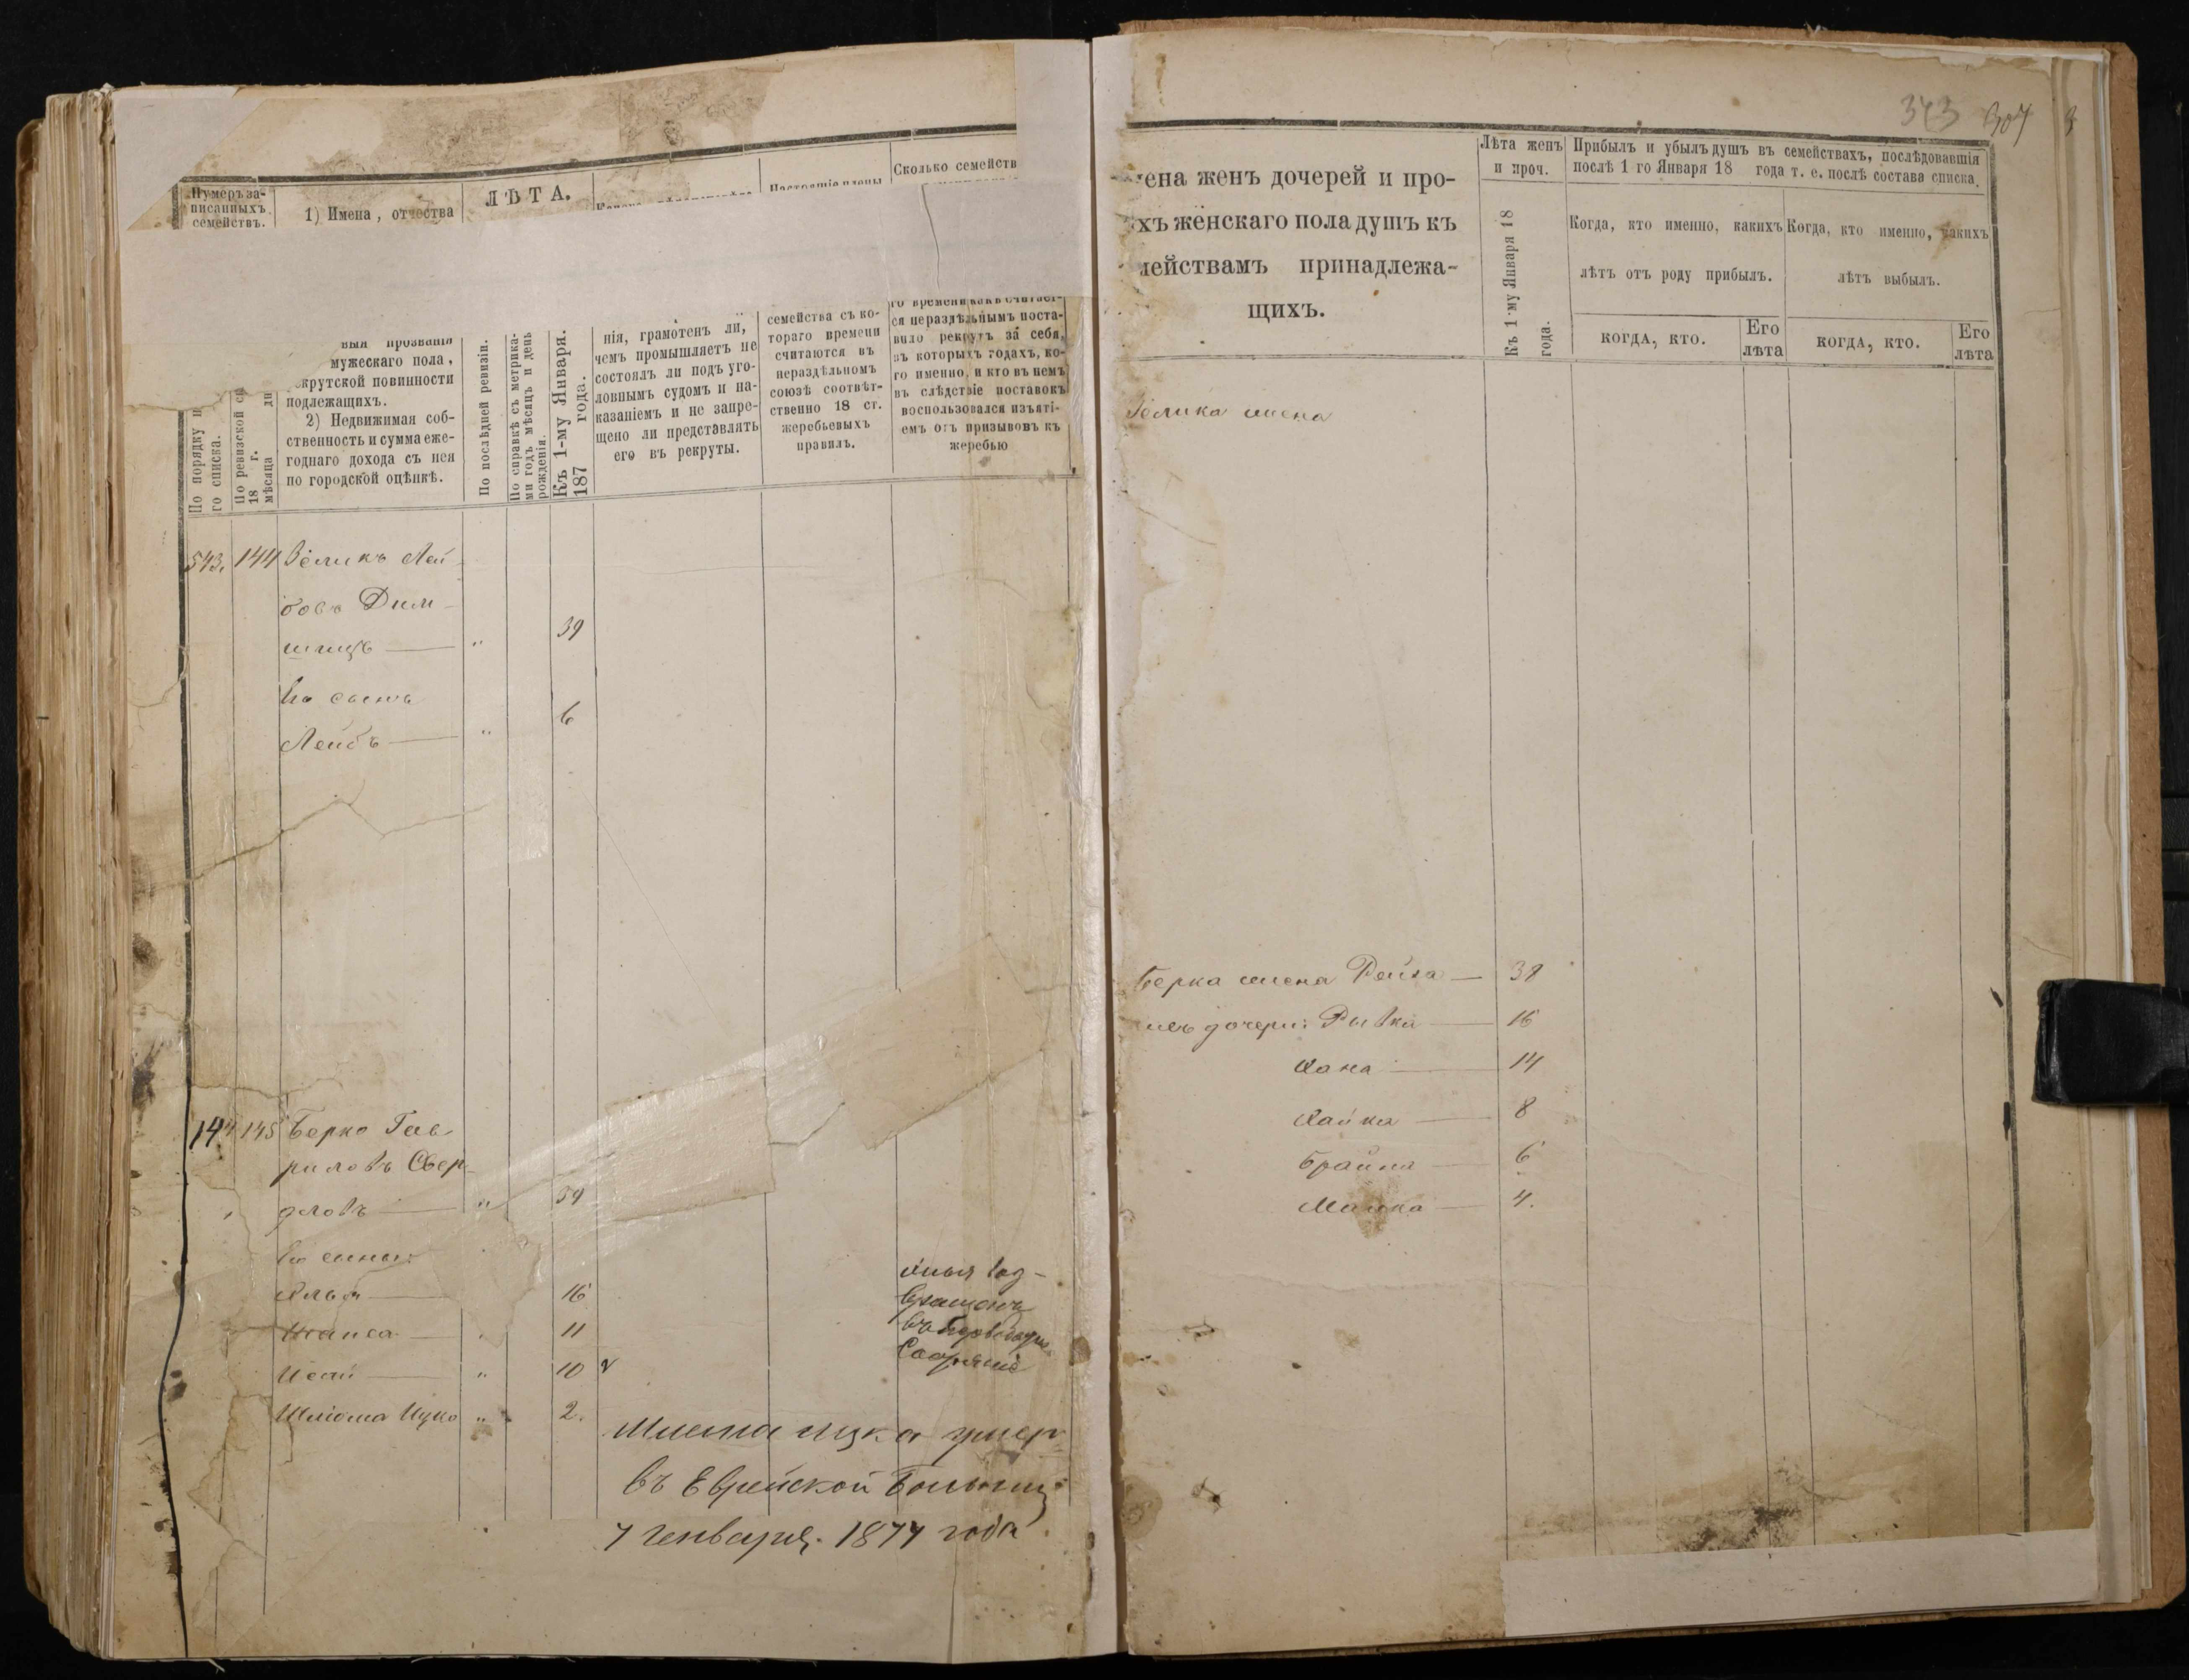 Нумеръ за-
писанныхъ
семействъ.
1) Имена, отчества
ЛѢТА.
Настоящіе члены
Сколько семейств
По порядку
го списка.
По ревизской
18 г.
мѣсяца
выя прозванія
мужескаго пола,
рекрутской повинности
подлежащихъ.
2) Недвижимая соб-
ственность и сумма еже-
годнаго дохода съ нея
по городской оцѣнкѣ.
По послѣдней ревизіи.
По справкѣ съ метрика-
ми годъ мѣсяцъ и день
рожденія.
Къ 1-му Января.
187 года.
нія, грамотенъ ли,
чемъ промышляетъ не
состоялъ ли подъ уго-
ловнымъ судомъ и на-
казаніемъ и не запре-
щено ли представлять
его въ рекруты.
семейства съ ко-
тораго времени
считаются въ
нераздѣльномъ
союзѣ соотвѣт-
ственно 18 ст.
жеребьевыхъ
правилъ.
го времени какъ считает-
ся нераздѣльнымъ поста-
вило рекрутъ за себя,
въ которыхъ годахъ, ко-
го именно, и кто въ немъ
въ слѣдствіе поставокъ
воспользовался изъяті-
емъ отъ призывовъ къ
жеребью
543. 144 Велик Лей
бовъ Дим-
шицъ — " 39
Его сынъ
Лейбъ — " 6
144 145 Берко Гав
риловъ Свер-
дловъ — " 39
Его сыны:
16
11
10 v
Шліома Ицко " 2.
ицка умер
въ Еврейской Больниц
7 генваря 1877 года
343 307 3
ена женъ дочерей и про-
хъ женскаго пола душъ къ
мействамъ принадлежа-
щихъ.
Лѣта женъ
и проч.
Къ 1-му Января 18
года.
Прибылъ и убылъ душъ въ семействахъ, послѣдовавшія
послѣ 1 го Января 18 года т. е. послѣ состава списка.
Когда, кто именно, какихъ
лѣтъ отъ роду прибылъ.
Когда, кто именно, какихъ
лѣтъ выбылъ.
КОГДА, КТО.
Его
лѣта
КОГДА, КТО.
Его
лѣта
Велика жена
Берка жена Рейза — 38
ихъ дочери: Рывка — 16
Хана — 14
Хайка — 8
Брайна — 6
Малка — 4.